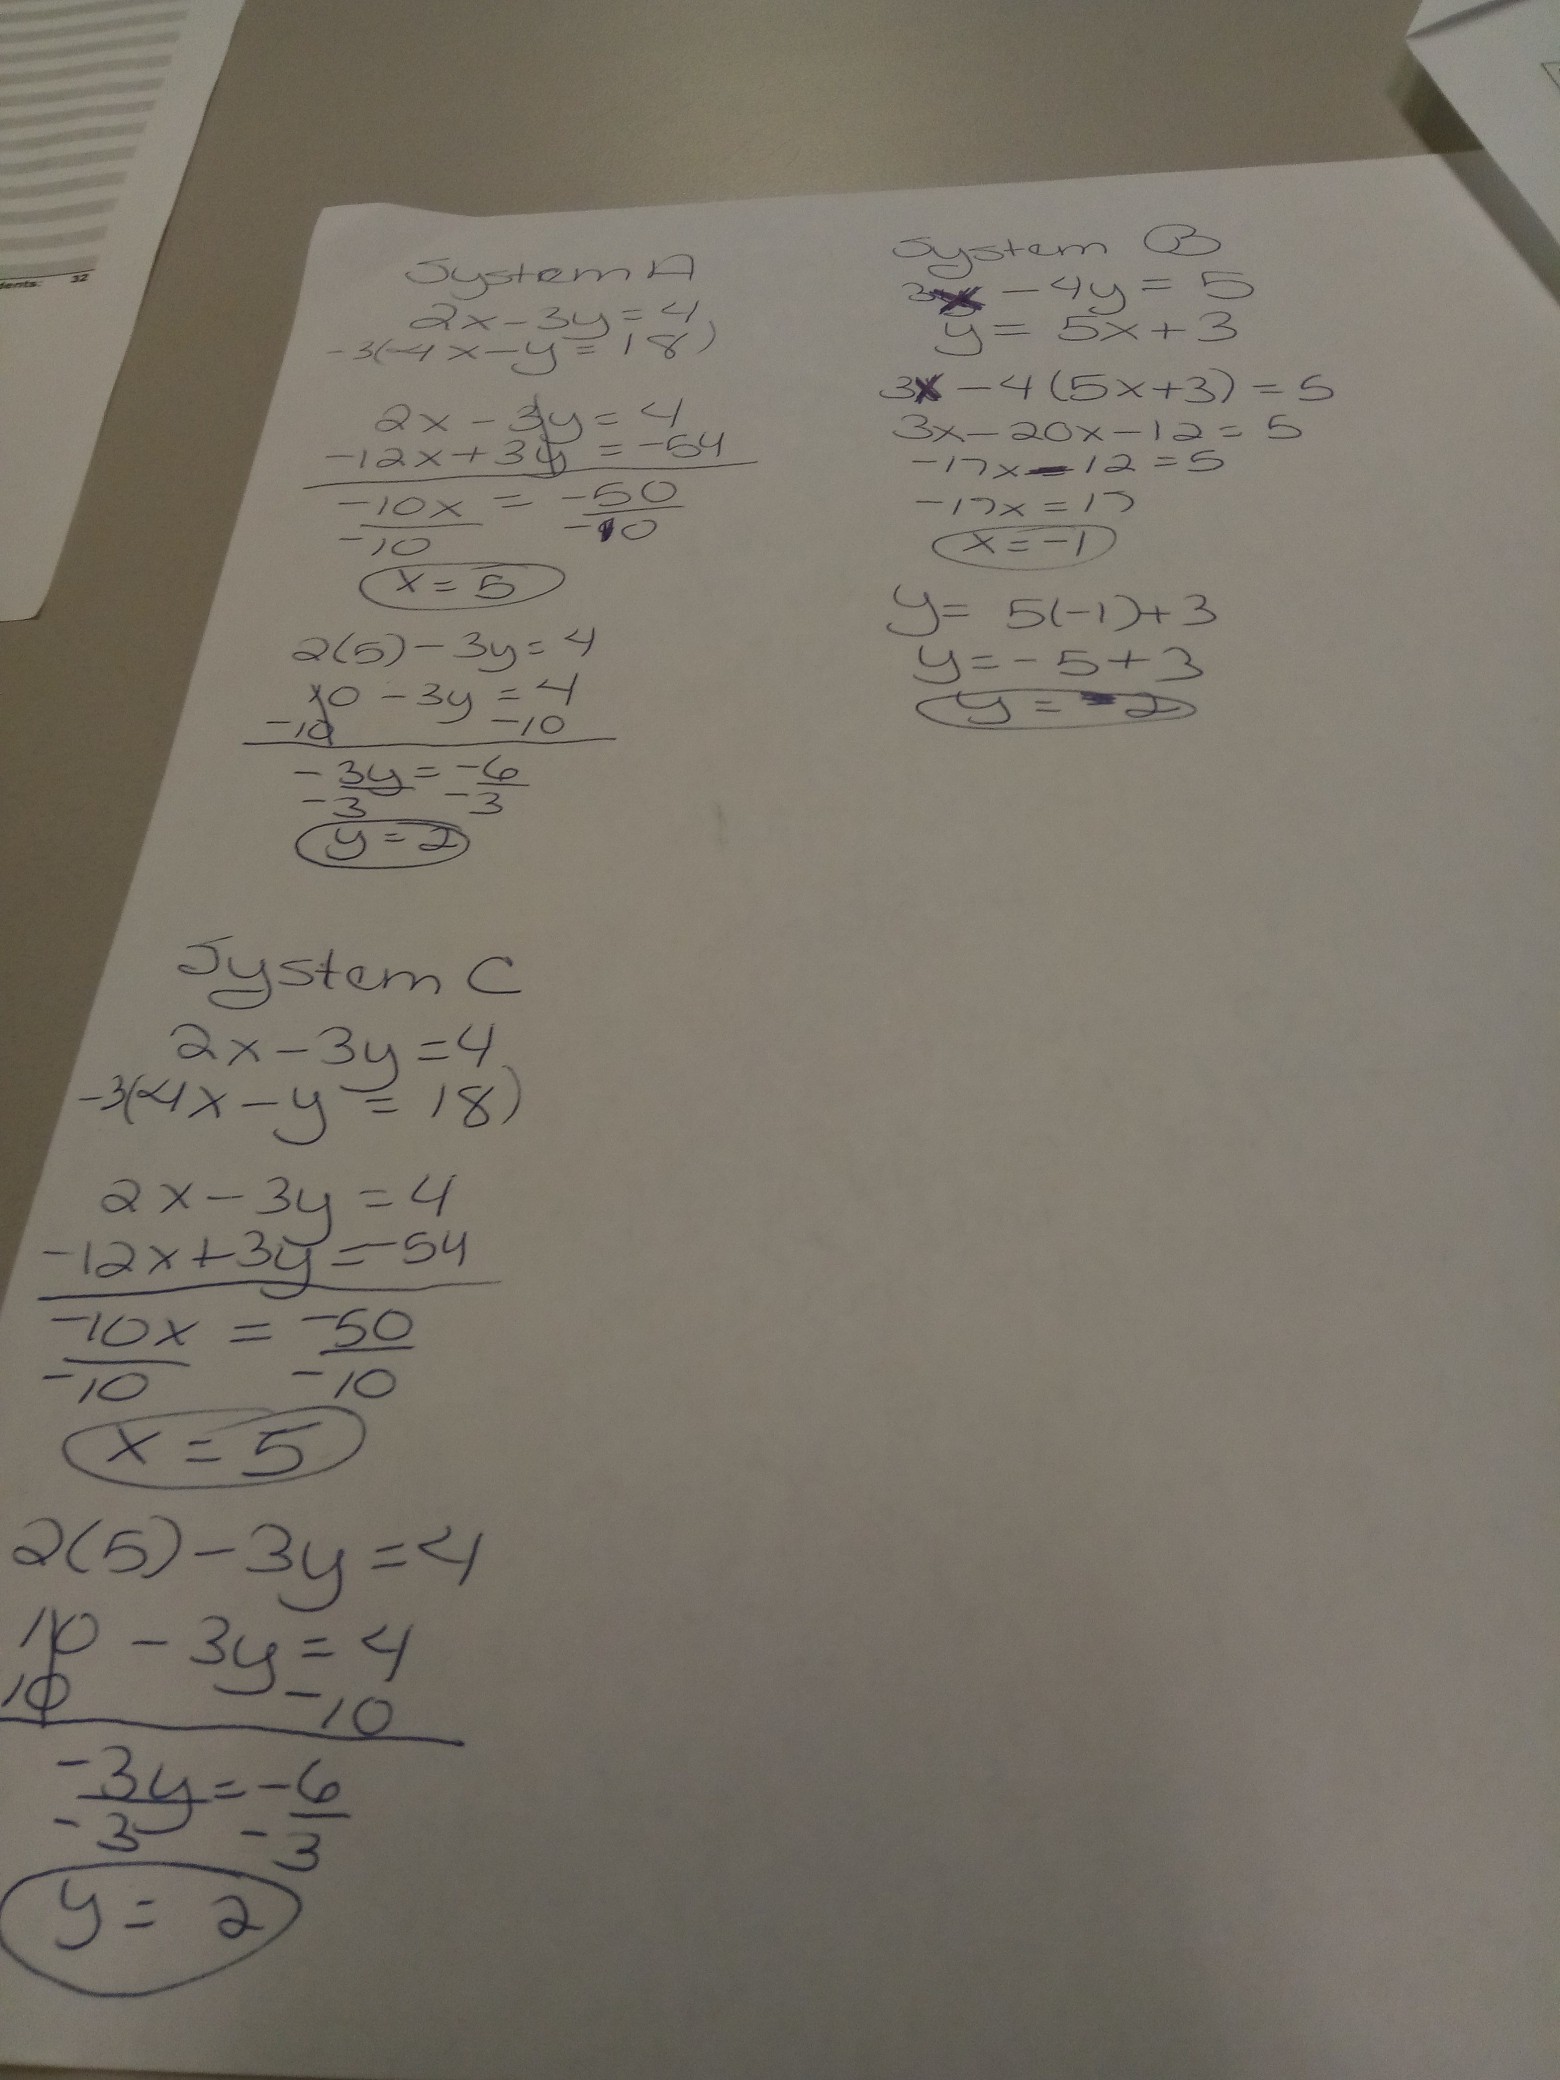 dents: 32
System A
2x - 3y = 4
-3(4x - y = 18)
2x - 3y = 4
-12x + 3y = -54
-10x = -50
-10 -10
x = 5
2(5) - 3y = 4
10 - 3y = 4
-10 -10
-3y = -6
-3 -3
y = 2
System B
3x - 4y = 5
y = 5x + 3
3x - 4(5x+3) = 5
3x - 20x - 12 = 5
-17x - 12 = 5
-17x = 17
x = -1
y = 5(-1) + 3
y = -5 + 3
y = -2
System C
2x - 3y = 4
-3(4x - y = 18)
2x - 3y = 4
-12x + 3y = -54
-10x = -50
-10 -10
x = 5
2(5) - 3y = 4
10 - 3y = 4
10 -10
-3y = -6
-3 -3
y = 2